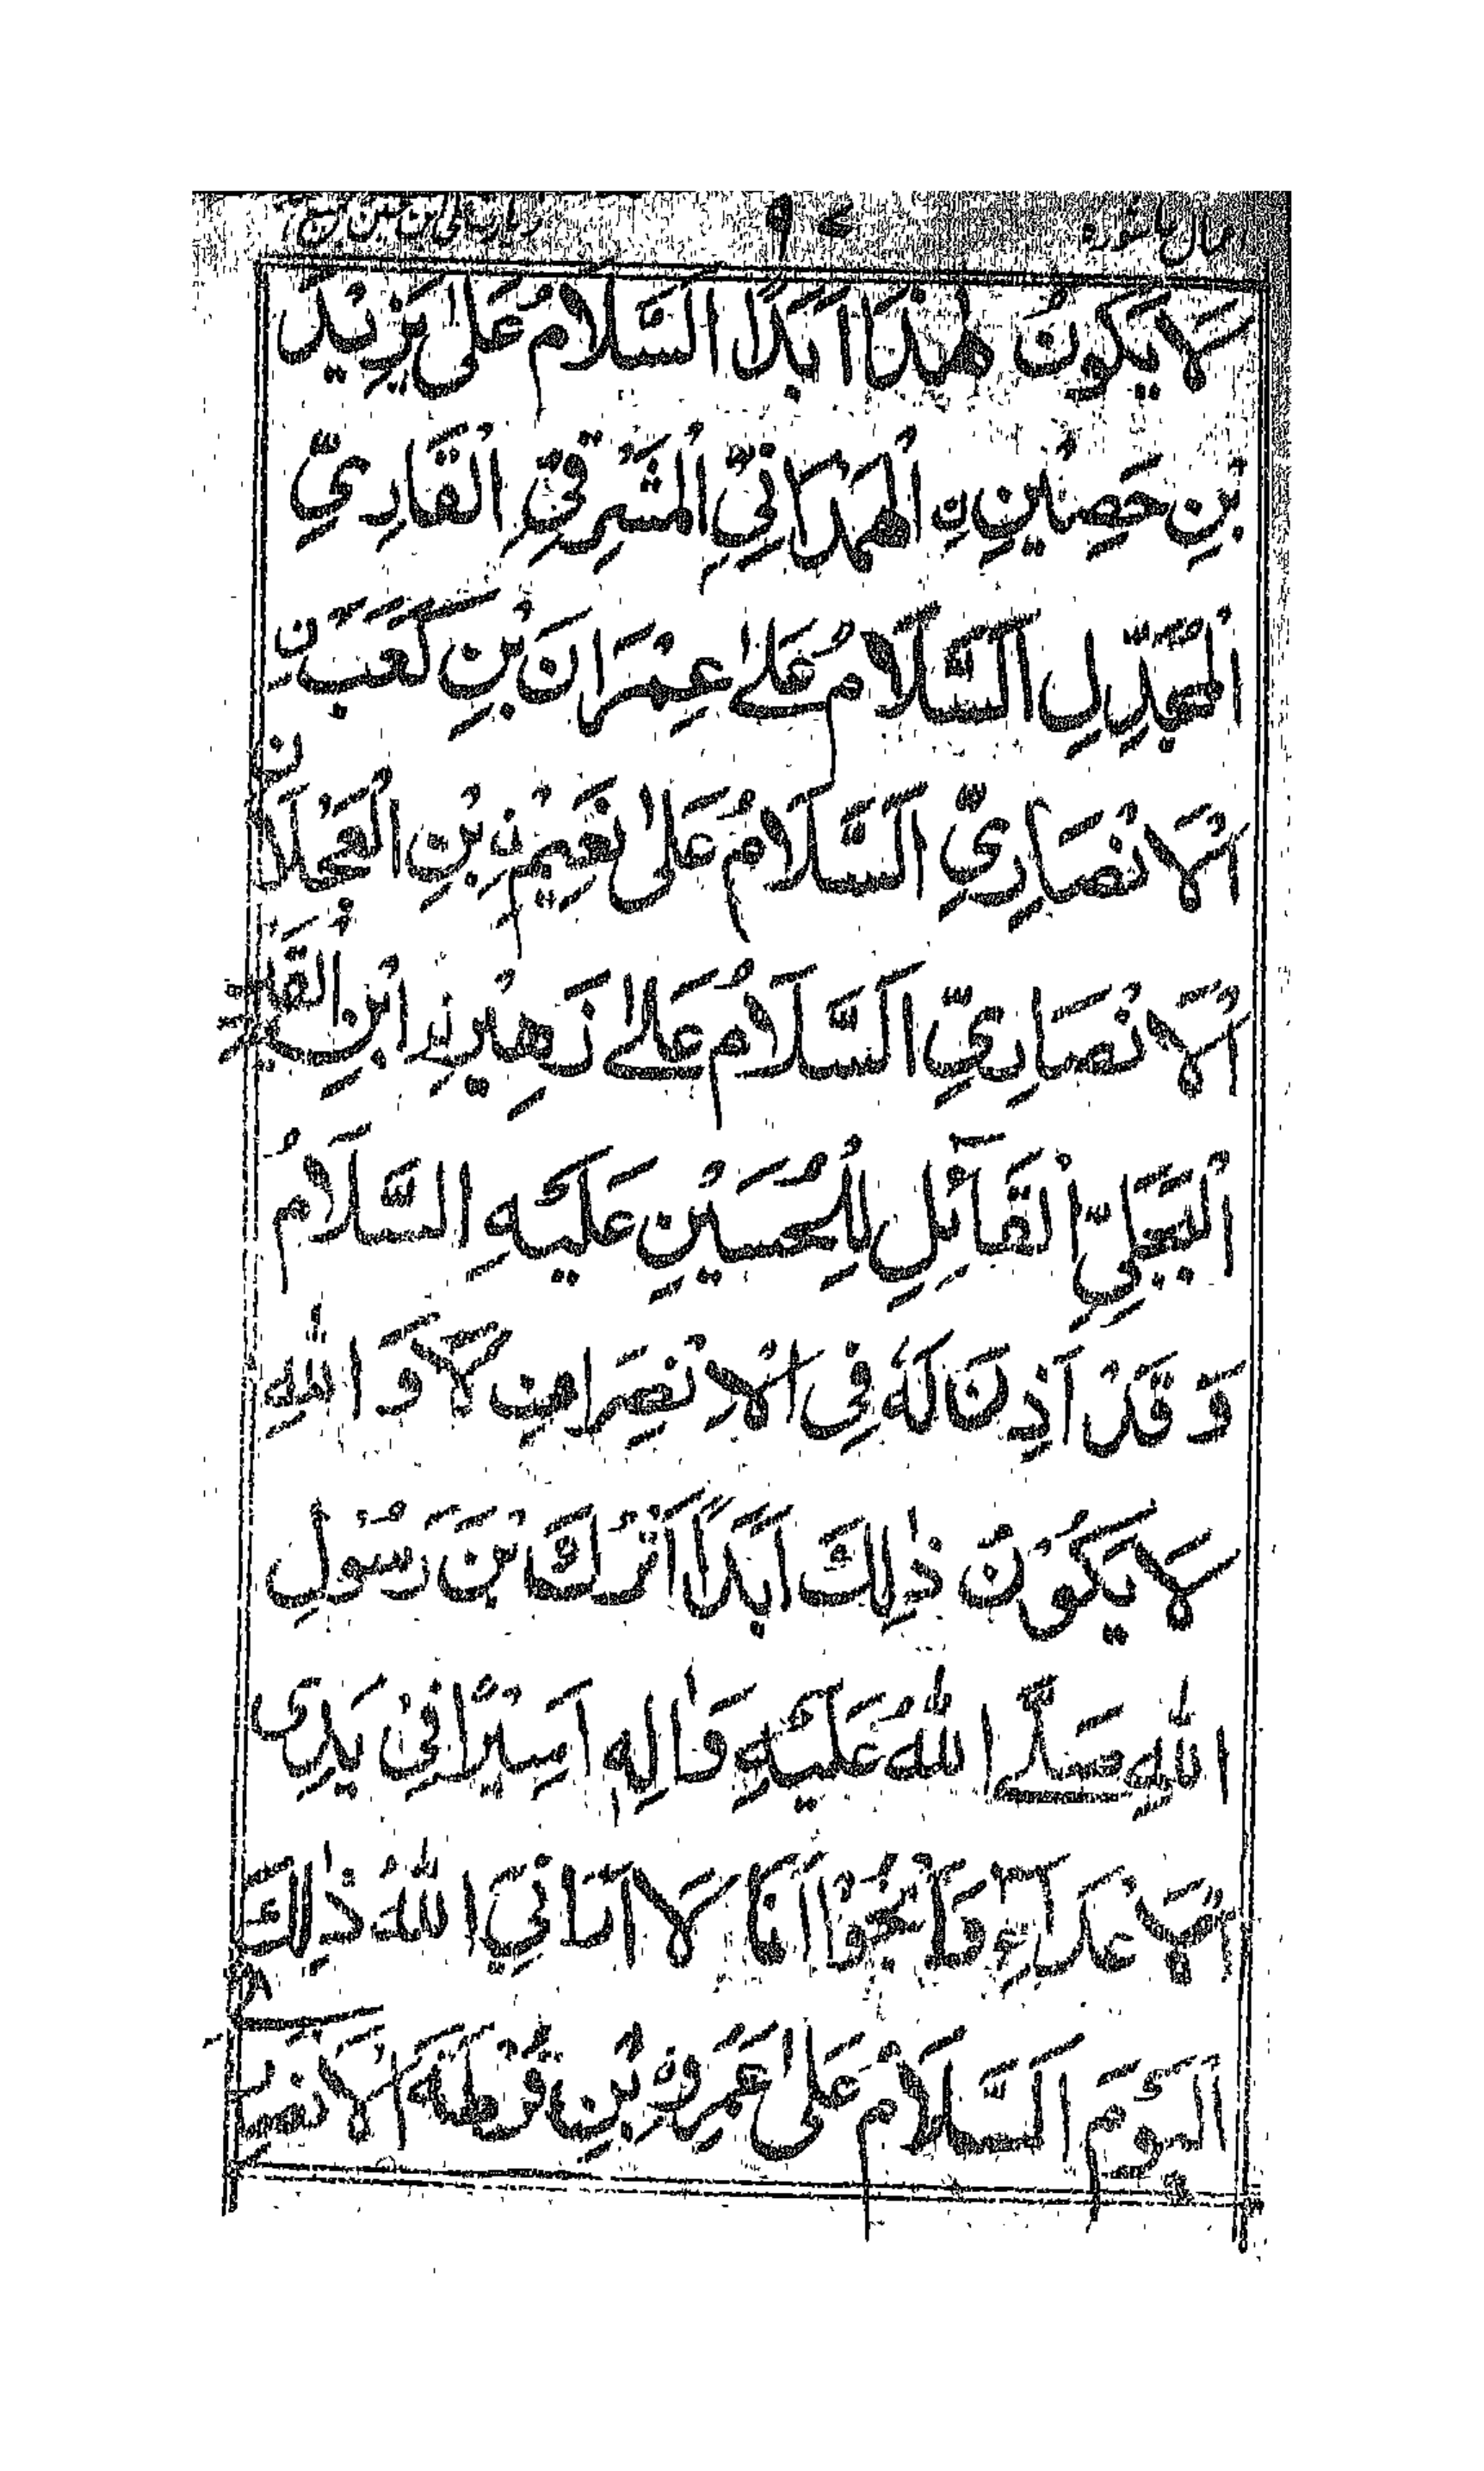 ۹۷
لَا يَكُونُ هٰذَا اَبَدًا اَلسَّلَامُ عَلٰى يَزِيْدَ
بْنِ حَصِيْنِ نِ الْهَمْدَانِيِّ الْمَشْرِقِيِّ الْقَارِيِّ
الْمُجَدِّلِ اَلسَّلَامُ عَلٰى عِمْرَانَ بْنِ كَعْبِ نِ
الْاَنْصَارِيِّ اَلسَّلَامُ عَلٰى نَعِيْمِ بْنِ الْعَجْلَانِ
الْاَنْصَارِيِّ اَلسَّلَامُ عَلٰى زَهِيْرِ ابْنِ الْقَيْنِ
الْبَجَلِيِّ الْقَائِلِ لِلْحُسَيْنِ عَلَيْهِ السَّلَامُ
وَقَدْ اَذِنَ لَهٗ فِى الْاِنْصِرَافِ لَا وَاللّٰهِ
لَا يَكُوْنُ ذٰلِكَ اَبَدًا اَتْرُكُ بْنَ رَسُوْلِ
اللّٰهِ صَلَّے اللّٰهُ عَلَيْهِ وَاٰلِهٖ اَسِيْرًا فِيْ يَدِى
الْاَعْدَاۤءِ وَاَنْجُوْا اَنَا لَا اَرَانِيَ اللّٰهُ ذٰلِكَ
الْيَوْمَ اَلسَّلَامُ عَلٰى عَمْرِو بْنِ قُرْطَةَ الْاَنْصَارِيِّ